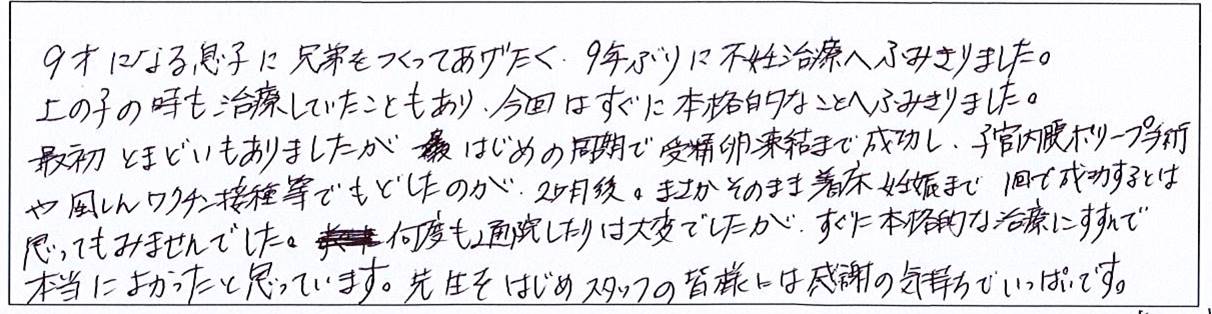 9才になる息子に兄弟をつくってあげたく、9年ぶりに不妊治療へふみきりました。
上の子の時も治療していたこともあり、今回はすぐに本格的なことへふみきりました。
最初とまどいもありましたがはじめの周期で受精卵凍結まで成功し、子宮内膜ポリープ手術
や風しんワクチン接種等でもどしたのが、2ヶ月後。まさかそのまま着床妊娠まで1回で成功するとは
思ってもみませんでした。何度も通院したりは大変でしたが、すぐに本格的な治療にすすんで
本当によかったと思っています。先生をはじめスタッフの皆様には感謝の気持ちでいっぱいです。